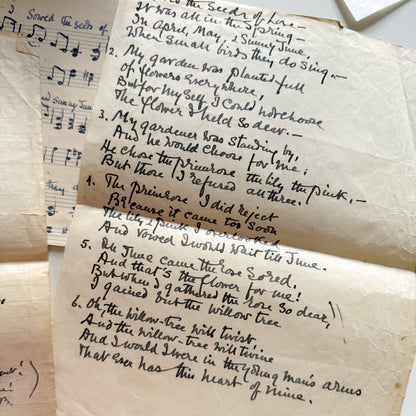 I Sowed the seeds of
the Seeds of Love —
It was all in the Spring —
In April, May, & Sunny June
When small birds they do sing. —
2. My garden was planted full
of flowers everywhere,
But for myself I could not choose
The flower I held so dear. —
3. My gardener was standing by,
And he would choose for me:
He chose the primrose the lily the pink, —
But those I refused all three.
4. The primrose I did reject
Because it came too soon
The lily & pink I overlooked
And vowed I would wait till June.
5. In June came the rose so red,
And that's the flower for me!
But when I gathered the rose so dear,
I gained but the willow tree
6. Oh, the willow-tree will twist
And the willow-tree will twine
And I would I were in the young man's arms
That Ever has this heart of mine.
Sunny June
they d